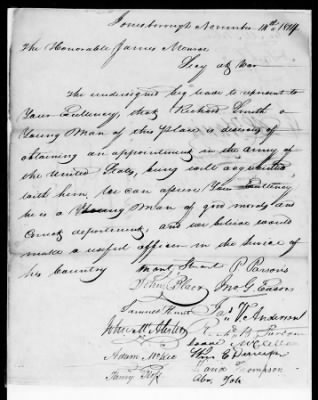 Jonesborough November 14th 1814
The Honorable James Monroe
Secy at War
The undersigned beg leave to represent to
Your Excellency, that Richard Smith a
Young Man of this place is desirous of
obtaining an appointment in the army of
the United States, being well acquainted
with him, We can assure Your Excellency
he is a Young Man of good morals and
Correct deportment, and we believe would
make a useful officer in the service of
his Country
Mont Stuart P. Parsons
John Blair Jno G. Eason
Samuel Hunt Jas V Anderson
John McAlister
Adam McKee